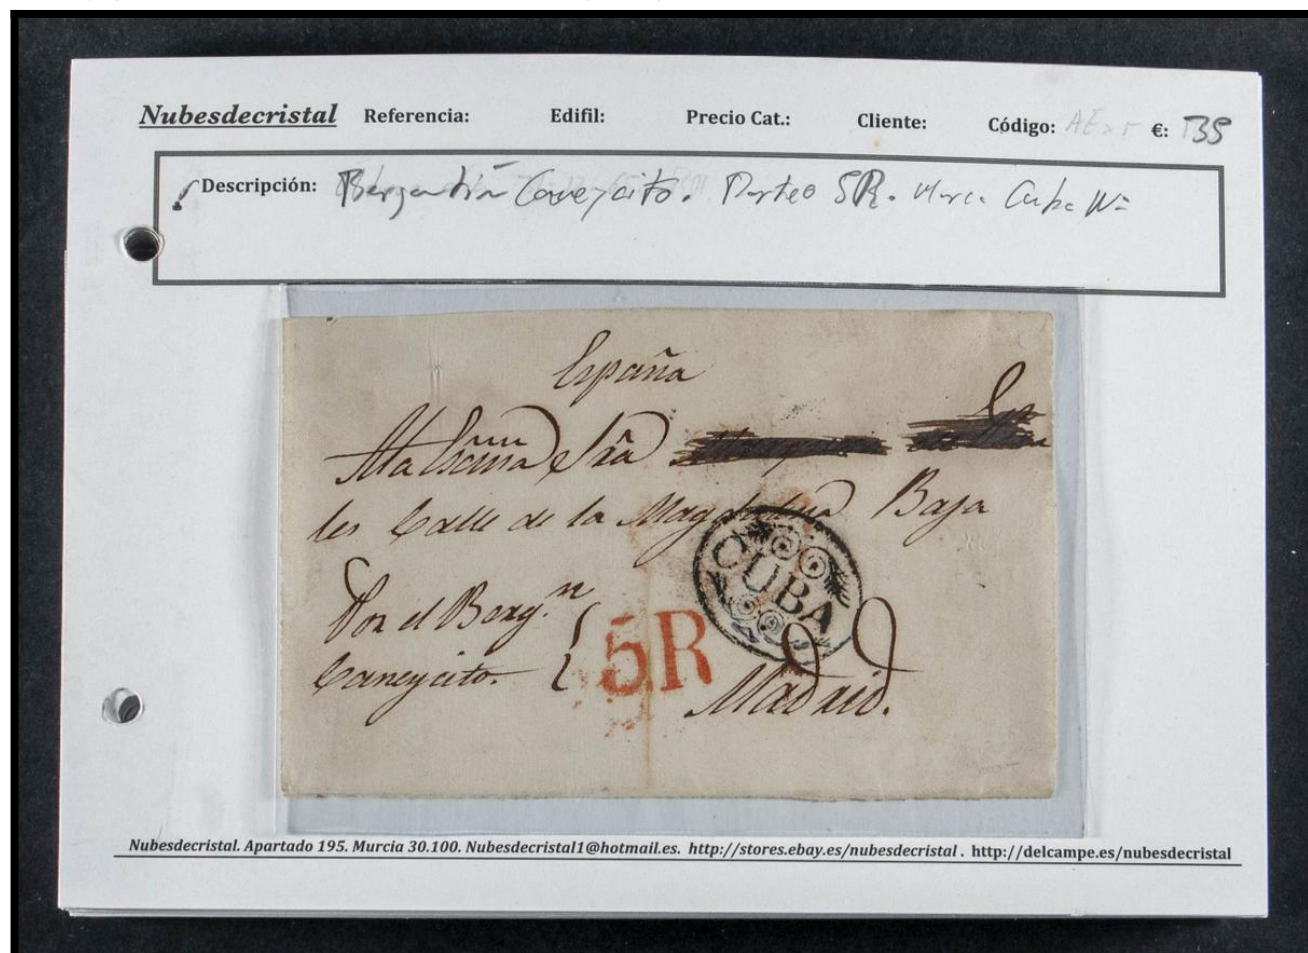 Nubesdecristal Referencia: Edifil: Precio Cat.: Cliente: Código: €: 135
Descripción: Bergantín Caneycito. Porteo 5R. Marca Cuba Nº
España
A la Excma Sra
les Calle de la Magdalena Baja
CUBA
Por el Berg.n
Caneycito.
5R
Madrid.
Nubesdecristal. Apartado 195. Murcia 30.100. Nubesdecristal1@hotmail.es. http://stores.ebay.es/nubesdecristal . http://delcampe.es/nubesdecristal